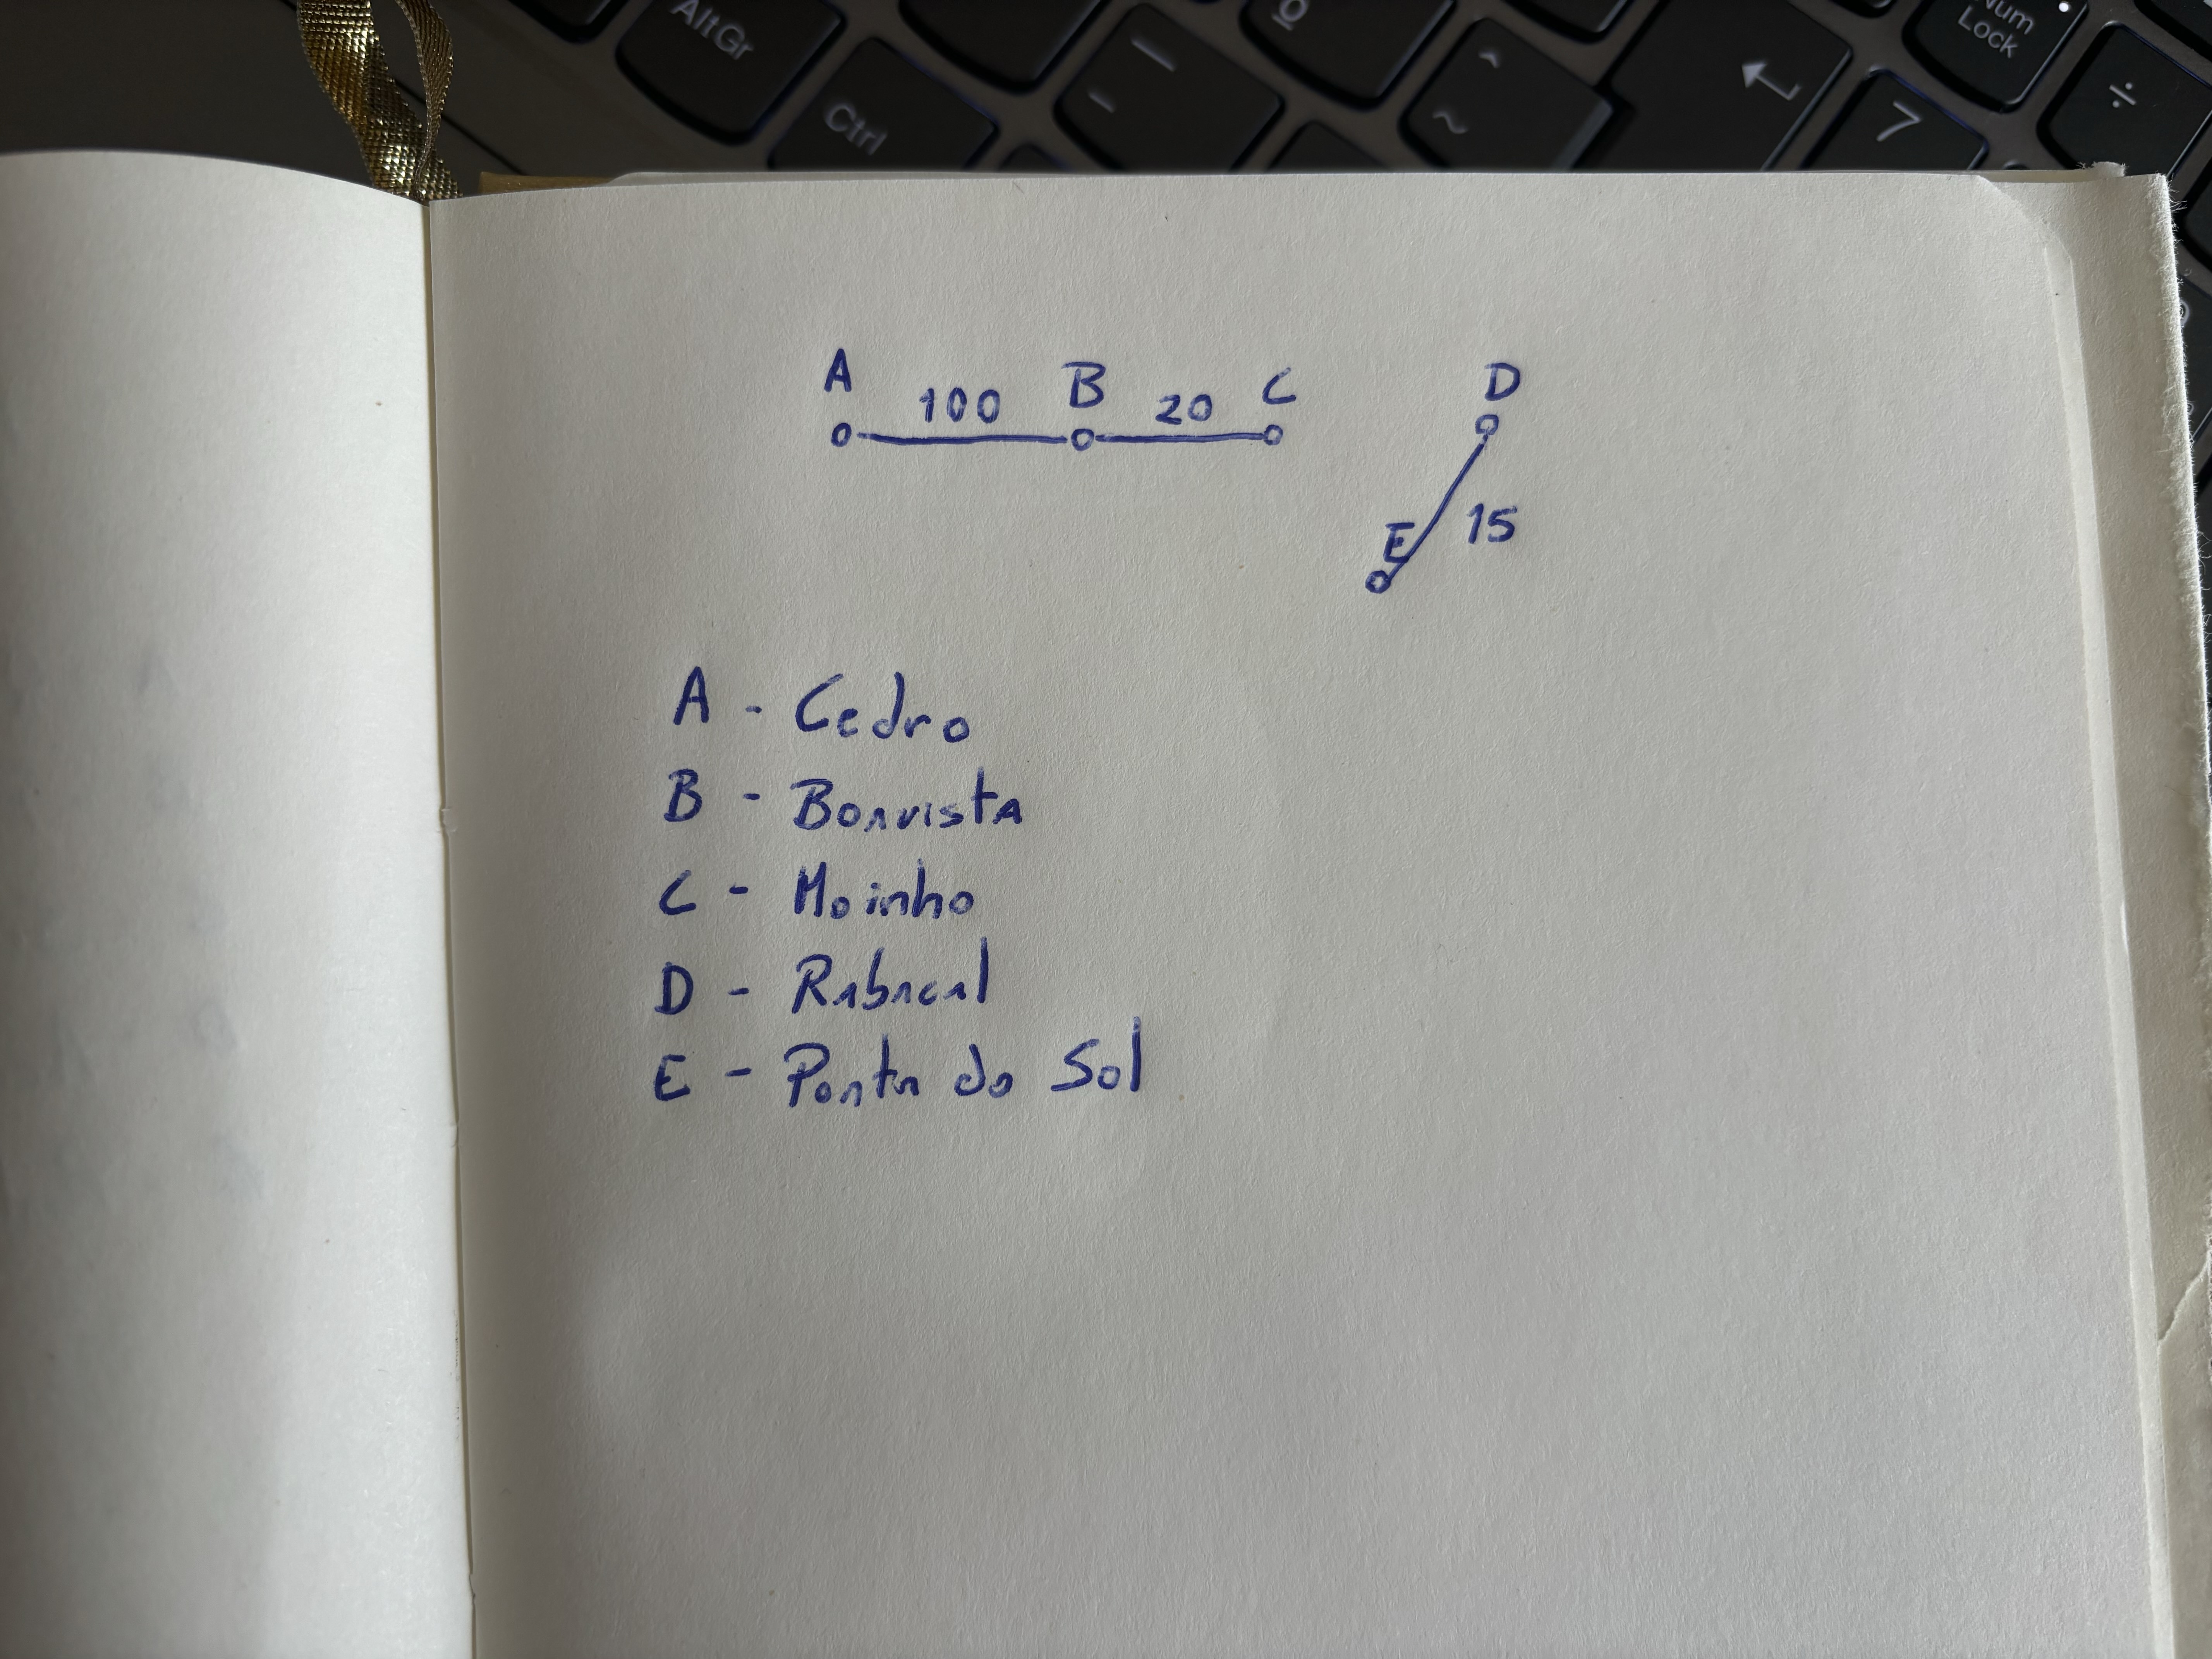 AltGr
Ctrl
º
Num
Lock
7
÷
A 100 B 20 C
D
E 15
A - Cedro
B - Boavista
C - Moinho
D - Rabacal
E - Ponta do Sol